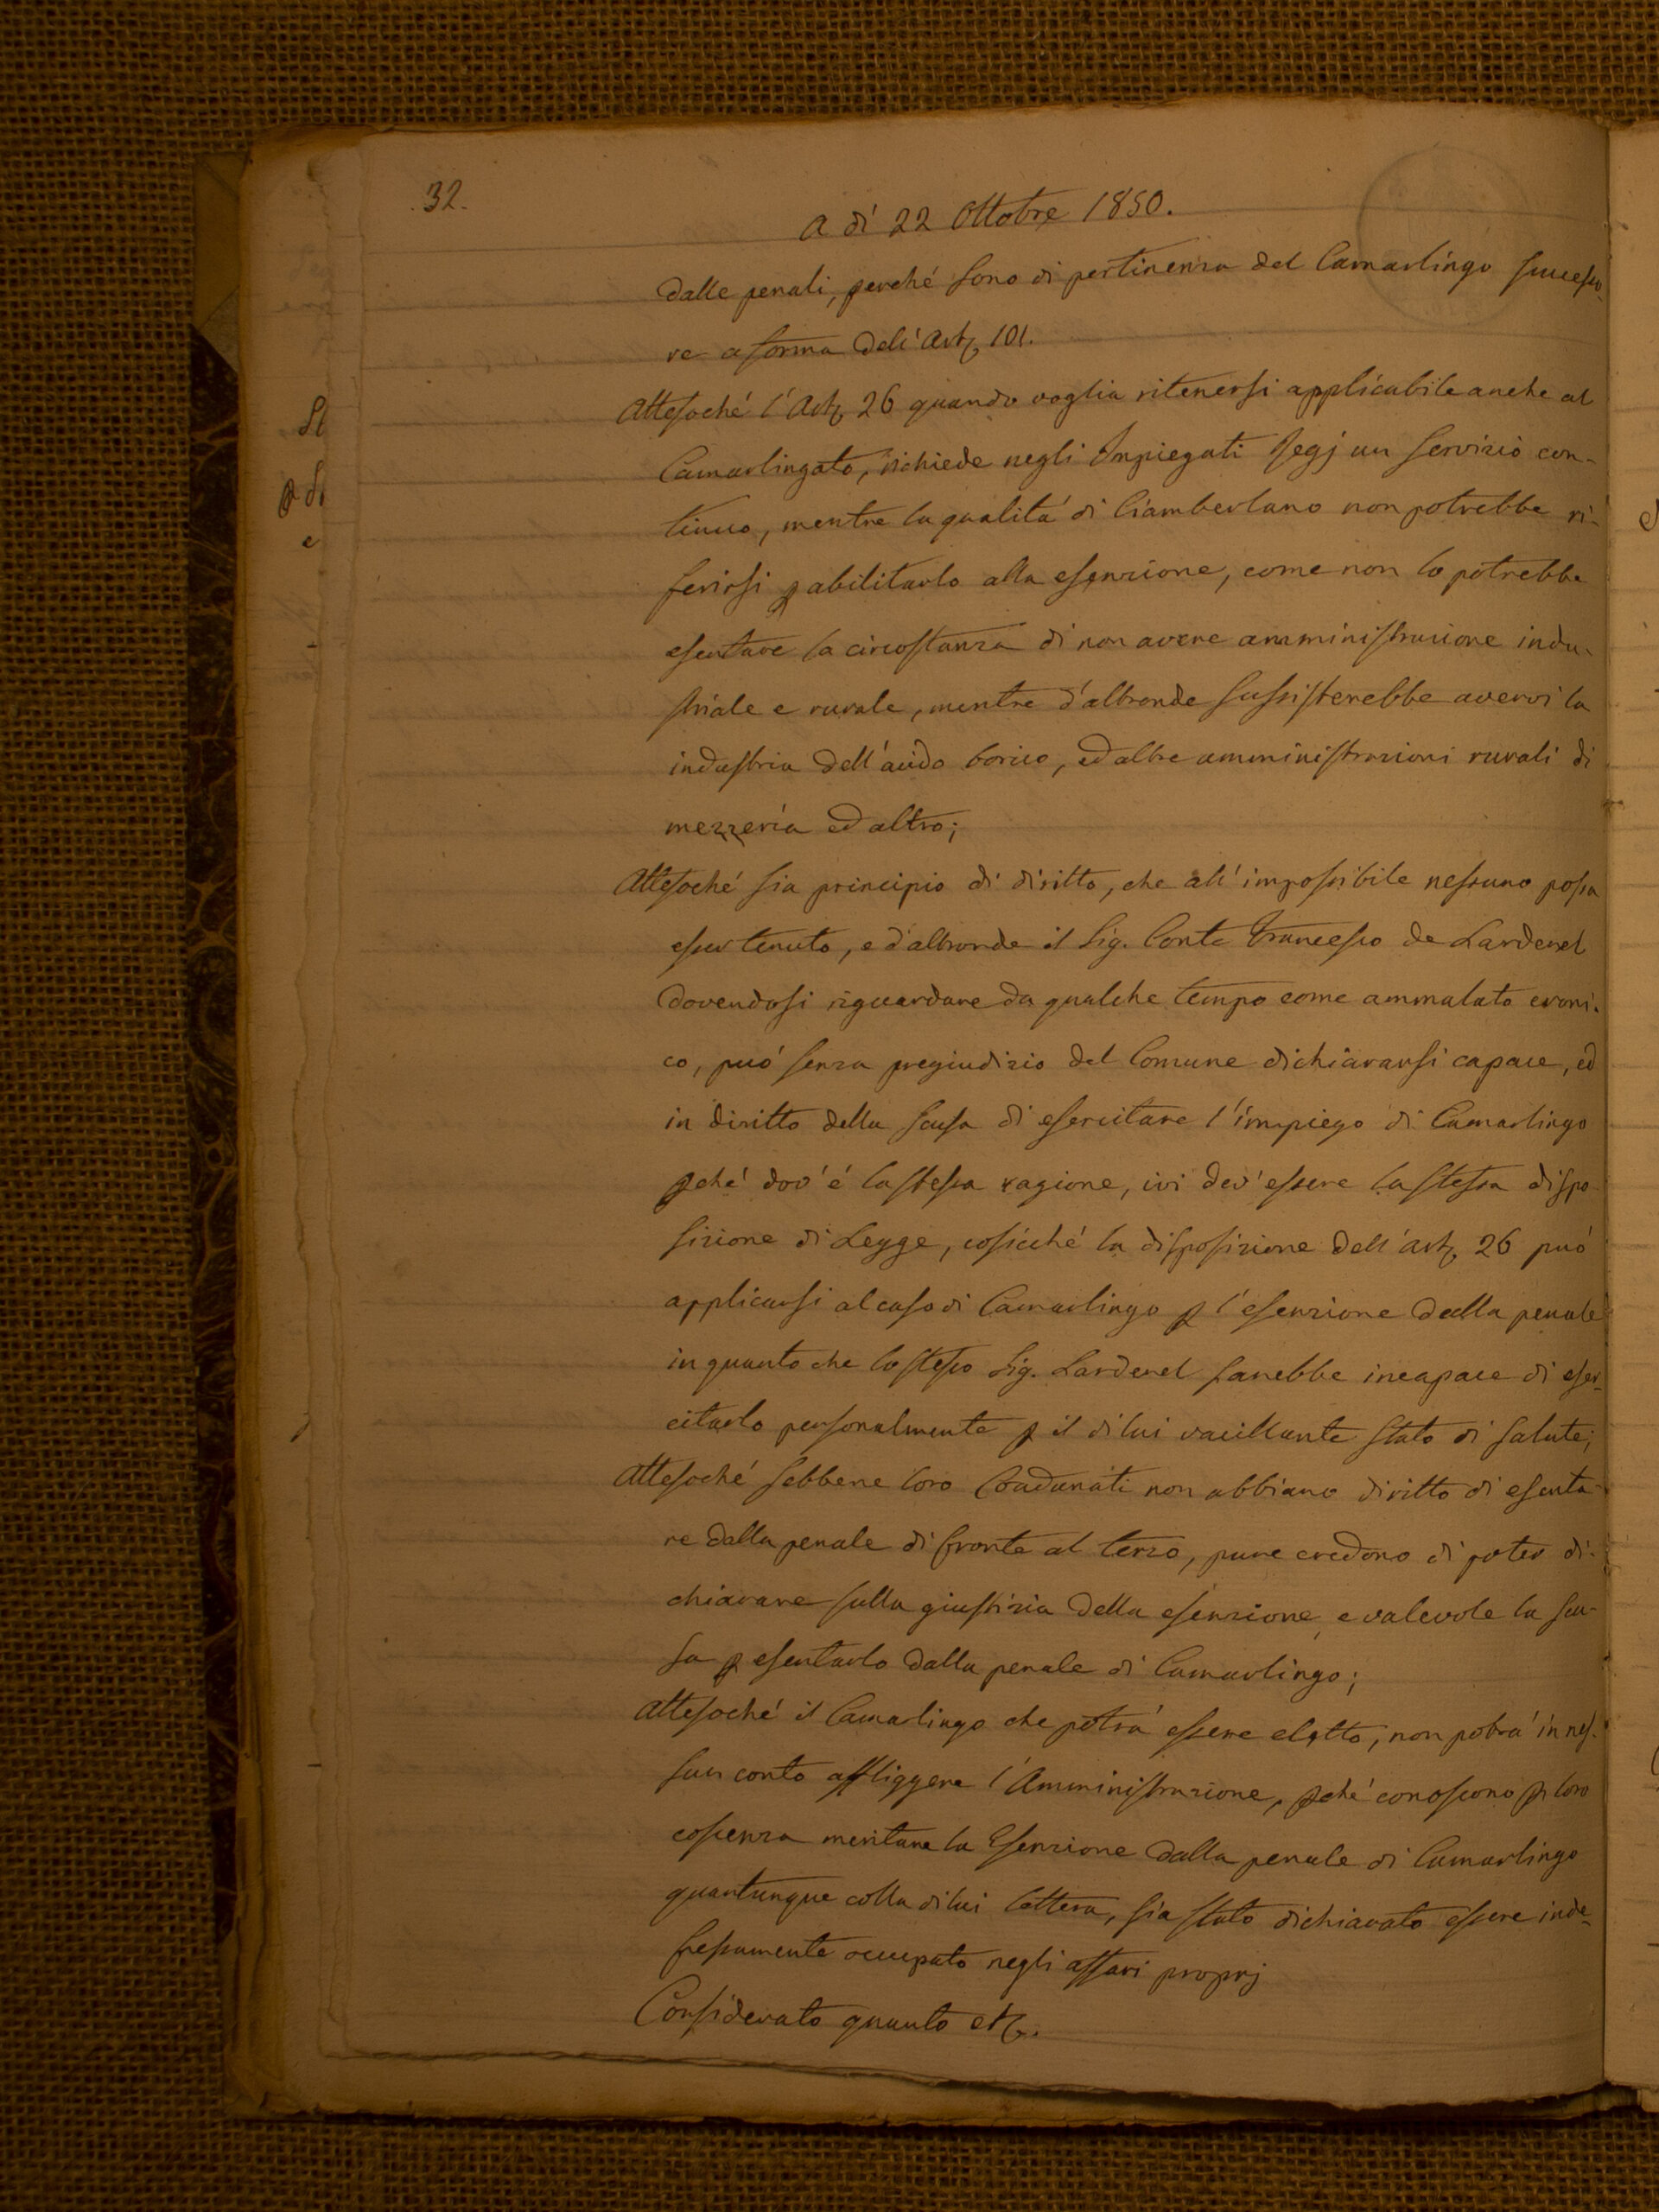 32.
A dì 22 Ottobre 1850.
dalle penali, perché sono di pertinenza del Camarlingo successo-
re a forma dell'Art. 101.
Attesoché l'Art. 26 quando voglia ritenersi applicabile anche al
Camarlingato, richiede negli Impiegati Regj un servizio con-
tinuo, mentre la qualità di Ciamberlano non potrebbe ri-
ferirsi p abilitarlo alla esenzione, come non lo potrebbe
esentare la circostanza di non avere amministrazione indu-
striale e rurale, mentre d'altronde sussisterebbe avervi la
industria dell'acido borico, ed altre amministrazioni rurali di
mezzeria ed altro;
Attesoché sia principio di diritto, che all'impossibile nessuno possa
esser tenuto, e d'altronde il Sig. Conte Francesco de Larderel
dovendosi riguardare da qualche tempo come ammalato croni-
co, può senza pregiudizio del Comune dichiararsi capace, ed
in diritto della scusa di esercitare l'impiego di Camarlingo
pché dov'é la stessa ragione, ivi dev'essere la stessa dispo-
sizione di Legge, cosicché la disposizione dell'art. 26 può
applicarsi al caso di Camarlingo p l'esenzione dalla penale
in quanto che lo stesso Sig. Larderel sarebbe incapace di eser-
citarlo personalmente p il di lui vacillante stato di salute;
Attesoché sebbene loro Coadunati non abbiano diritto di esenta-
re dalla penale di fronte al terzo, pure credono di poter di-
chiarare sulla giustizia della esenzione, e valevole la scu-
sa p esentarlo dalla penale di Camarlingo;
Attesoché il Camarlingo che potrà essere eletto, non potrà in nes-
sun conto affliggere l'Amministrazione, pché conoscono p loro
coscenza meritare la Esenzione dalla penale di Camarlingo
quantunque colla di lui lettera, sia stato dichiarato essere inde-
fessamente occupato negli affari proprj
Considerato quanto etc.